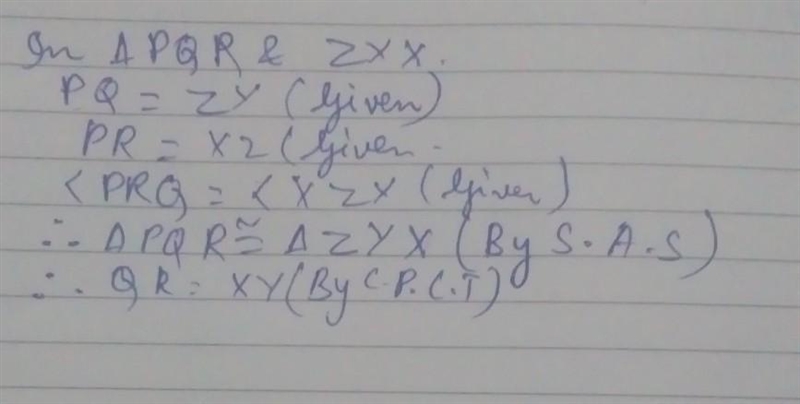 In Δ PQR & ZXX.
PQ = ZY (Given)
PR = XZ (Given.
<PRQ = <XZX (Given)
∴ ΔPQR ≅ ΔZYX (By S.A.S)
∴ QR = XY (By C.P.C.T)